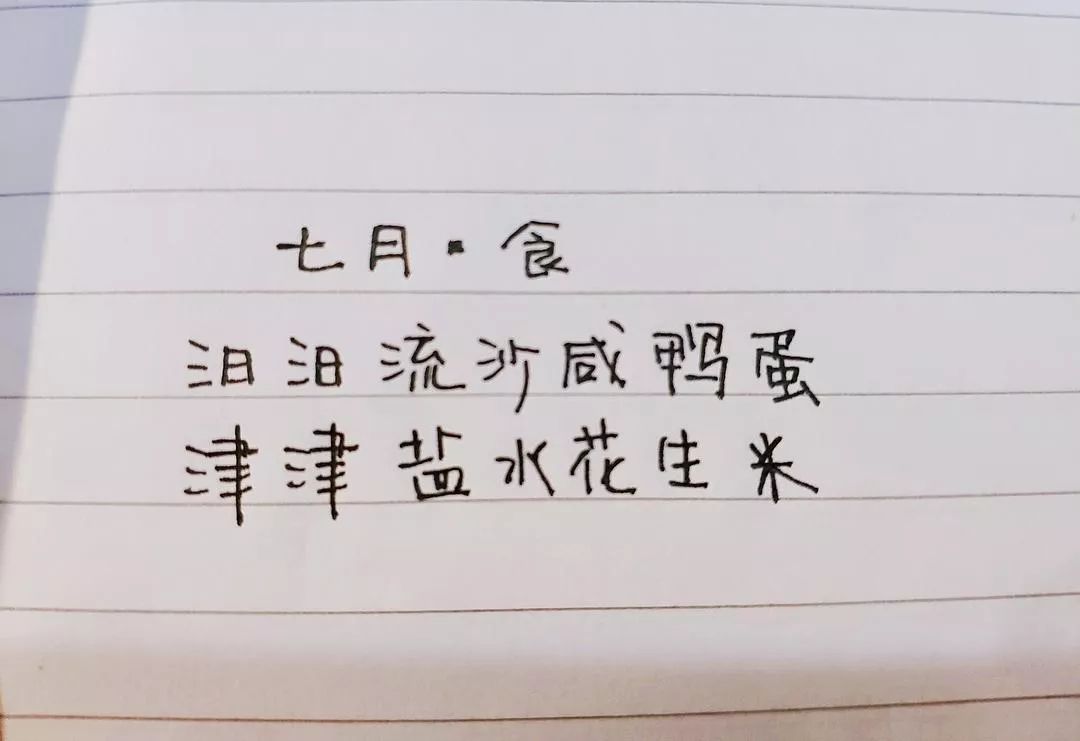 七月·食
汩汩流沙咸鸭蛋
津津盐水花生米